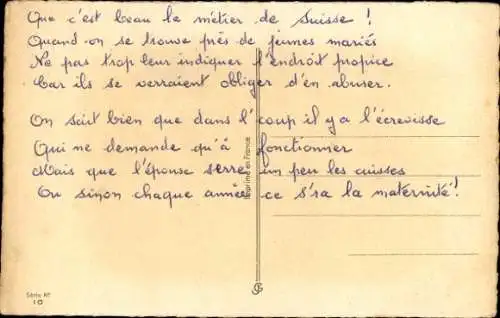 Que c'est beau la métier de Suisse !
Quand-on se trouve près de jeunes mariés
Ne pas trop leur indiquer l'endroit propice
Car ils se verraient obliger d'en abuser.
On sait bien que dans l'coup il y a l'écrevisse
Qui ne demande qu'à fonctionner
Mais que l'épouse serre un peu les cuisses
Ou sinon chaque année ce s'ra la maternité!
Imprimé en France
Série N°
10